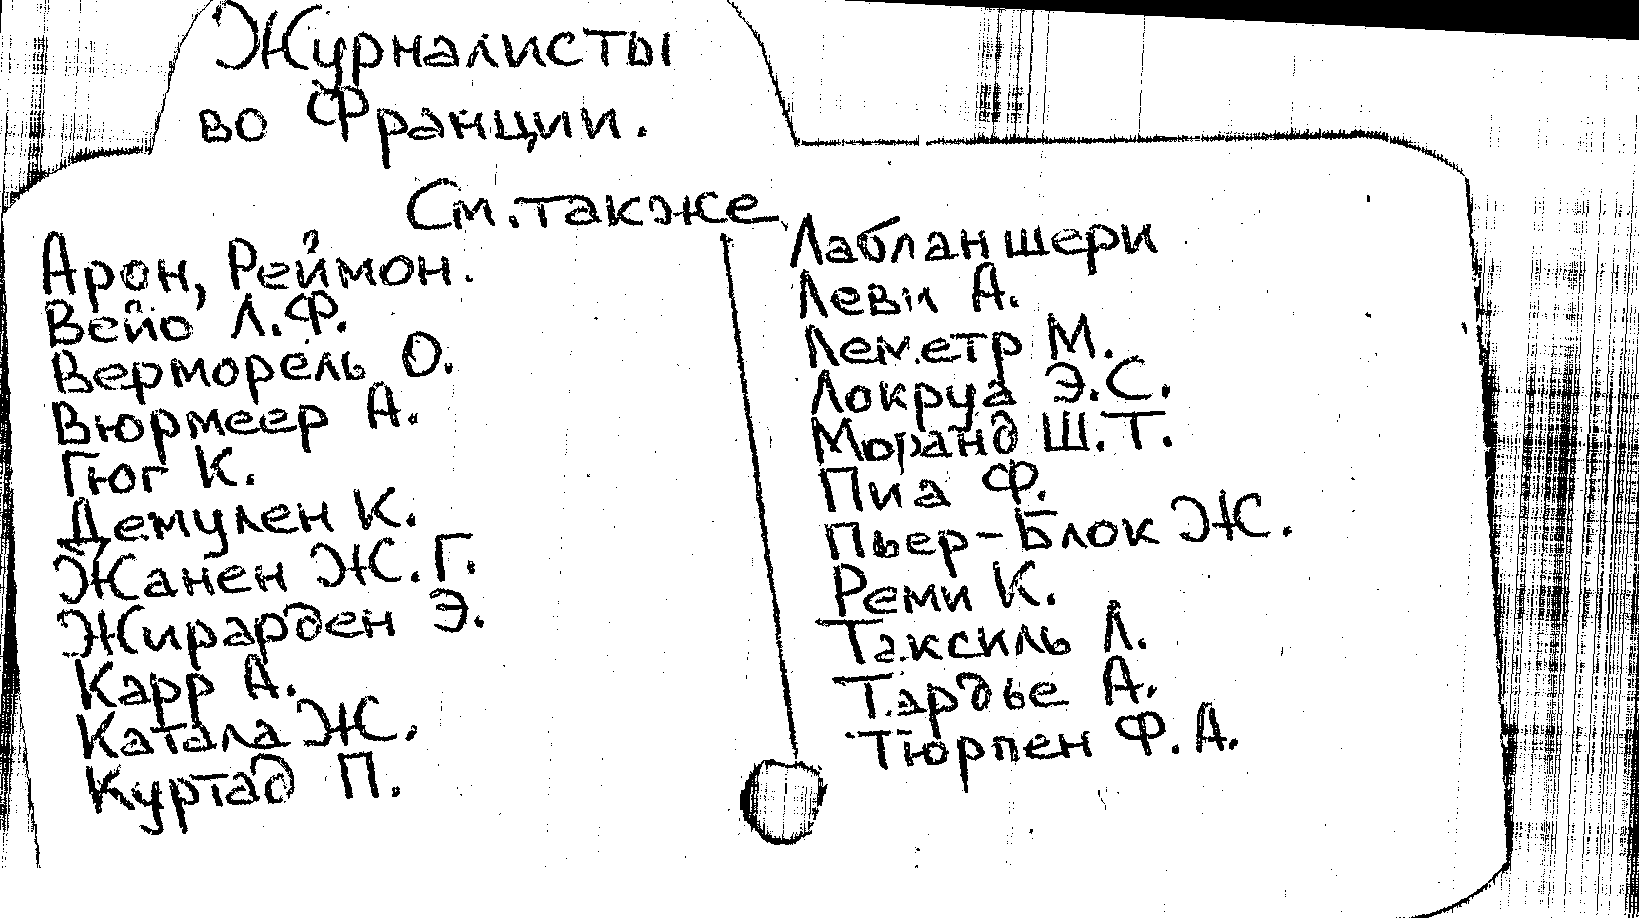 Журналисты
во Франции.
См. также
Арон, Реймон.
Вейо Л.Ф.
Верморель О.
Вюрмеер А.
Гюг К.
Демулен К.
Жанен Ж.Г.
Жирарден Э.
Карр А.
Катала Ж.
Куртад П.
Лабланшери
Леви А.
Леметр М.
Локруа Э.С.
Моранд Ш.Т.
Пиа Ф.
Пьер-Блок Ж.
Реми К.
Таксиль Л.
Тардье А.
Тюрпен Ф.А.